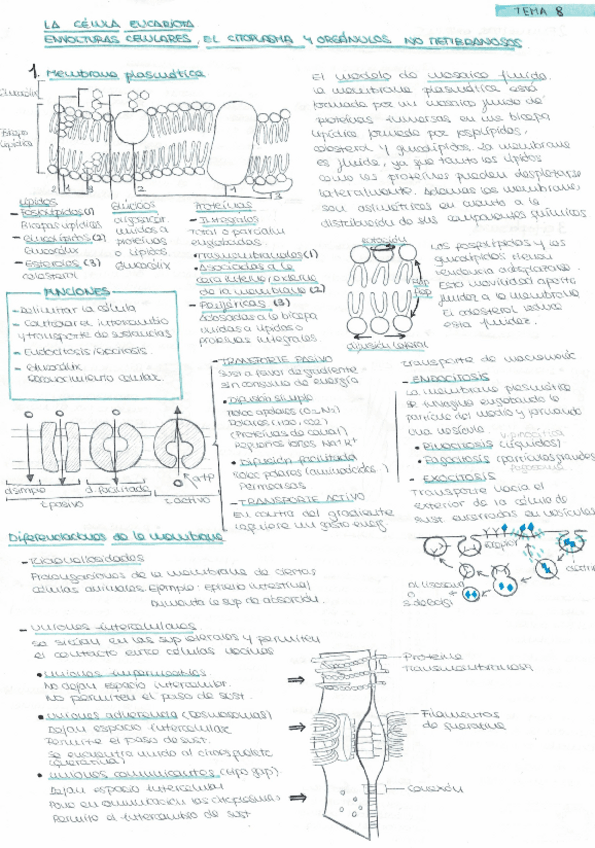 TEMA 8
LA CÉLULA EUCARIOTA
ENVOLTURAS CELULARES, EL CITOPLASMA Y ORGÁNULOS NO MEMBRANOSOS
1. Membrana plasmática
Glucocálix
Bicapa
lipídica
2 1 3
2 1 3
Lípidos
- Fosfolípidos (1)
Bicapas lipídicas
- Glucolípidos (2)
Glucocálix
- Esteroles (3)
colesterol
Glúcidos
unidos a
proteínas
o lípidos.
Glucocálix
Proteínas
- Integrales
total o parcialm
englobadas.
• Transmembranales (1)
• Asociadas a la
cara interna o externa
de la membrana (2)
- Periféricas (3)
Adosadas a la bicapa
unidas a lípidos o
proteínas integrales.
El modelo de mosaico fluido.
la membrana plasmática está
formada por un mosaico fluido de
proteínas inmersas en una bicapa
lipídica formada por fosfolípidos,
colesterol y glucolípidos. La membrana
es fluida, ya que tanto los lípidos
como las proteínas pueden desplazarse
lateralmente. Además las membranas
son asimétricas en cuanto a la
distribución de sus componentes químicos
rotación
Flip
Flop
difusión lateral
Los fosfolípidos y los
glucolípidos tienen
tendencia a desplazarse.
Esta movilidad aporta
fluidez a la membrana
El colesterol reduce
esta fluidez.
FUNCIONES
- Delimitar la célula
- Controlar el intercambio
y transporte de sustancias
- Endocitosis /exocitosis.
- Glucocálix
Reconocimiento celular.
- TRANSPORTE PASIVO
Sust a favor de gradiente
sin consumo de energía
• Difusión simple
Molec apolares (O2 N2)
Polares (H2O, CO2)
(Proteínas de canal)
Pequeños iones Na+ K+
• Difusión facilitada
Molec polares (aminoácidos)
Permeasas
- TRANSPORTE ACTIVO
En contra del gradiente
requiere un gasto energ
transporte de macromoléc
- ENDOCITOSIS
La membrana plasmática
se invagina englobando la
partícula del medio y formando
una vesícula.
• Pinocitosis (líquidos).
• Fagocitosis (partículas grandes)
- EXOCITOSIS
Transporte hacia el
exterior de la célula de
sust encerradas en vesículas
d. simple
d. facilitada
t. pasivo
ATP
t. activo
Diferenciaciones de la membrana
- Microvellosidades
Prolongaciones de la membrana de ciertas
células animales. Ejemplo: epitelio intestinal
Aumenta la sup de absorción.
- Uniones intercelulares
Se sitúan en las sup laterales y permiten
el contacto entre células vecinas
• Uniones impermeables
No dejan espacio intercelular.
No permiten el paso de sust.
• Uniones adherencia (desmosomas)
Dejan espacio intercelular
Permite el paso de sust.
Se encuentra unido al citoesqueleto
(queratina)
• Uniones comunicantes (tipo gap).
Dejan espacio intercelular
Pone en comunicación los citoplasmas
Permite el intercambio de sust
Proteína
Transmembranosa
Filamentos
de queratina
Conexón